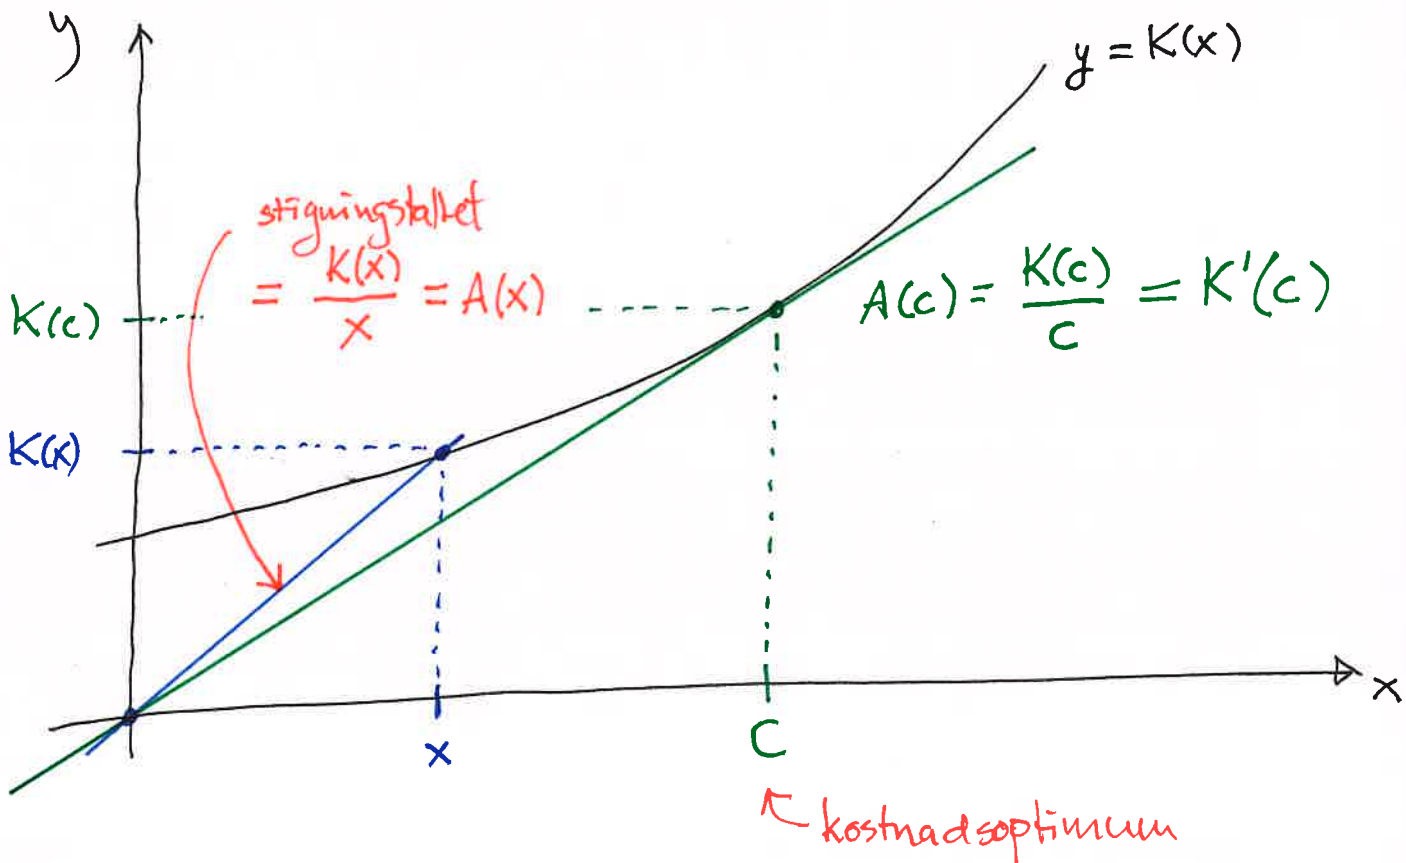 y
y = K(x)
stigningstallet
= K(x)/x = A(x)
K(c)
A(c) = K(c)/c = K'(c)
K(x)
x
x
C
kostnadsoptimum